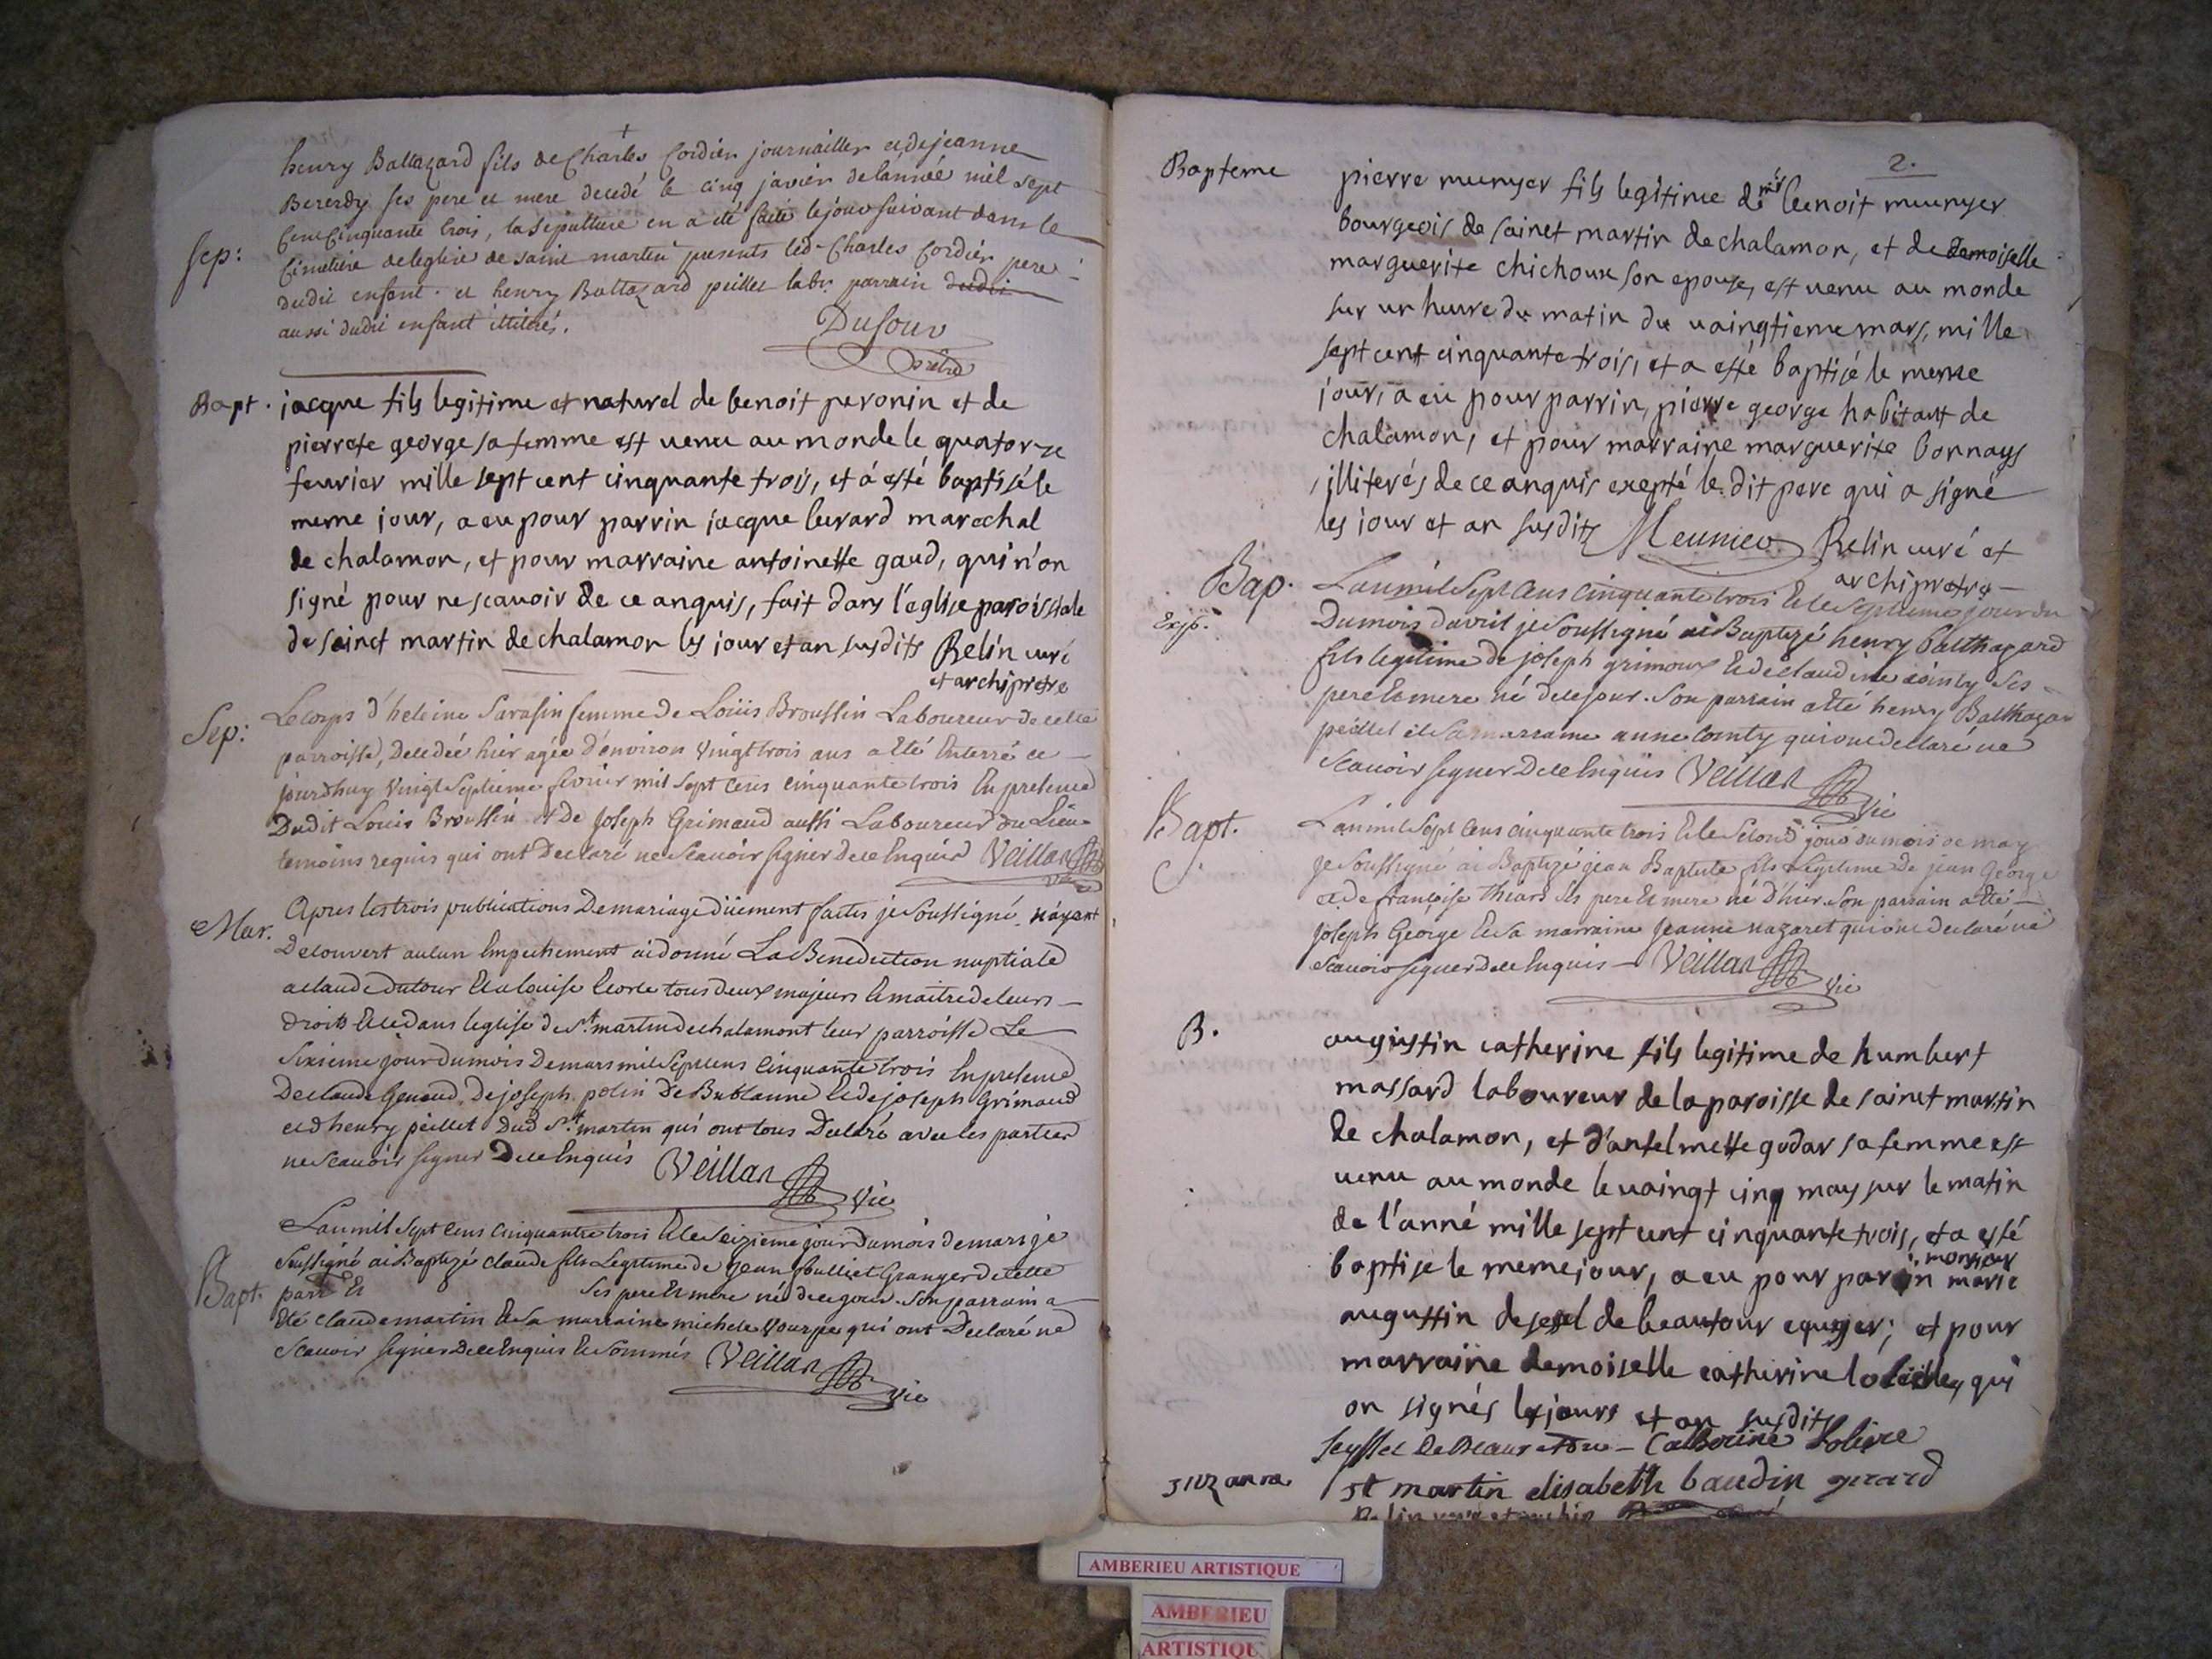 henry Baltazard fils de Charles Cordier journaillier et de jeanne
Bererdy ses pere et mere decedé le cinq javier de lánnée mil sept
Cent Cinquante trois, la sepulture en a été faite le jour suivant dans le
Sep:
Cimetiere de leglise de saint martin presents led Charles Cordier pere
dudit enfant et henry Baltazard peillet labr parrain dudit
aussi dudit enfant illiterés.
Dufour
prêtre
Bapt.
jacque fils legitime et naturel de benoit peronin et de
pierrete george sa femme est venu au monde le quatorze
fevrier mille sept cent cinquante trois, et á esté baptisé le
meme jour, a eu pour parrin jacque burard marechal
de chalamon, et pour marraine antoinette gaud, qui n'on
signé pour ne scavoir de ce anquis, fait dans l'eglise paroissiale
de sainct martin de chalamon les jour et an susdits Relin curé
et archipretre
Sep:
Le corps d'heleine Sarasin femme de Loüis Broussin Laboureur de cette
parroisse, decedée hier agée d'environ vingt trois ans a Eté Enterré ce
jourdhuy vingt septieme fevrier mil sept cens cinquante trois En presence
Dudit Louis Broussin et De Joseph Grimaud aussi Laboureur du Lieu
temoins requis qui ont Declaré ne Scauoir signer de ce Enquis Veillan
Vic
Mar.
Apres les trois publications De mariage düement faites je soussigné náyant
Decouvert aucun Empechement ai donné La Benediction nuptiale
a claude dutour Et a louise tous deux majeurs Et maitre de leurs
droits Et ce dans leglise de St. martin de chalamont leur parroisse Le
sixieme jour du mois De mars mil sept cens cinquante trois En presence
De claude Genaud, De joseph polin de Bublanne Et de joseph Grimaud
et d henry peillet dud St. martin qui ont tous Declaré avec les parties
ne Scauoir signer De ce Enquis Veillan
Vic
Lan mil sept cens Cinquante trois Et le Seizieme jour du mois de mars je
soussigné ai Baptizé claude fils Legitime de jean Granger de cette
Bapt.
parr Et ses pere Et mere né de ce jour. Son parrain a
Eté claude martin Et sa marraine michele qui ont Declaré ne
Scauoir signer De ce Enquis Et Sommés Veillan
Vic
2.
Bapteme
pierre meunyer fils legitime de mr benoit meunyer
bourgeois de sainct martin de chalamon, et de demoiselle
marguerite chichoux son epouse, est venu au monde
sur un heure du matin du vaingtieme mars, mille
sept cent cinquante trois, et a esté baptisé le meme
jour, a eu pour parrin, pierre george habitant de
chalamon, et pour marraine marguerite bonnays
illiterés de ce anquis exepté le dit pere qui a signé
les jour et an susdits Meunier Relin curé et
archipretre
Bap.
Lan mil Sept Cens Cinquante trois Et le Septieme jour du
Du mois davril je Soussigné ai Baptizé henry balthazard
fils legitime de joseph grimoux Et de claudine ses
pere Et mere né de ce jour. Son parrain a Eté henry Balthazar
peillet Et Sa marraine anne qui ont declaré ne
Scauoir signer De ce Enquis Veillan
Vic
Bapt.
Lan mil Sept Cens cinquante trois Et le Second jour du mois de may
je Soussigné ai Baptizé jean Baptiste fils Legitime de jean George
et de françoise thiard Ses pere Et mere né d'hier. Son parrain a Eté
joseph George Et Sa marraine jeanne nazaret qui ont declaré ne
Scauoir signer de ce Enquis Veillan
Vic
B.
augustin catherine fils legitime de humbert
massard laboureur de la paroisse de sainct martin
de chalamon, et d'antelmette godar sa femme est
venu au monde le vaingt cinq may sur le matin
de l'anné mille sept cent cinquante trois, et a esté
monsieur
baptise le meme jour, a eu pour parin marie
augustin de de beautour equyer; et pour
marraine demoiselle catherine qui
on signés les jours et an susdits
Seyssel De Beaur Catherine Lolivre
st martin elisabeth baudin gerard
Relin curé et archip
AMBERIEU ARTISTIQUE
AMBERIEU
ARTISTIQU